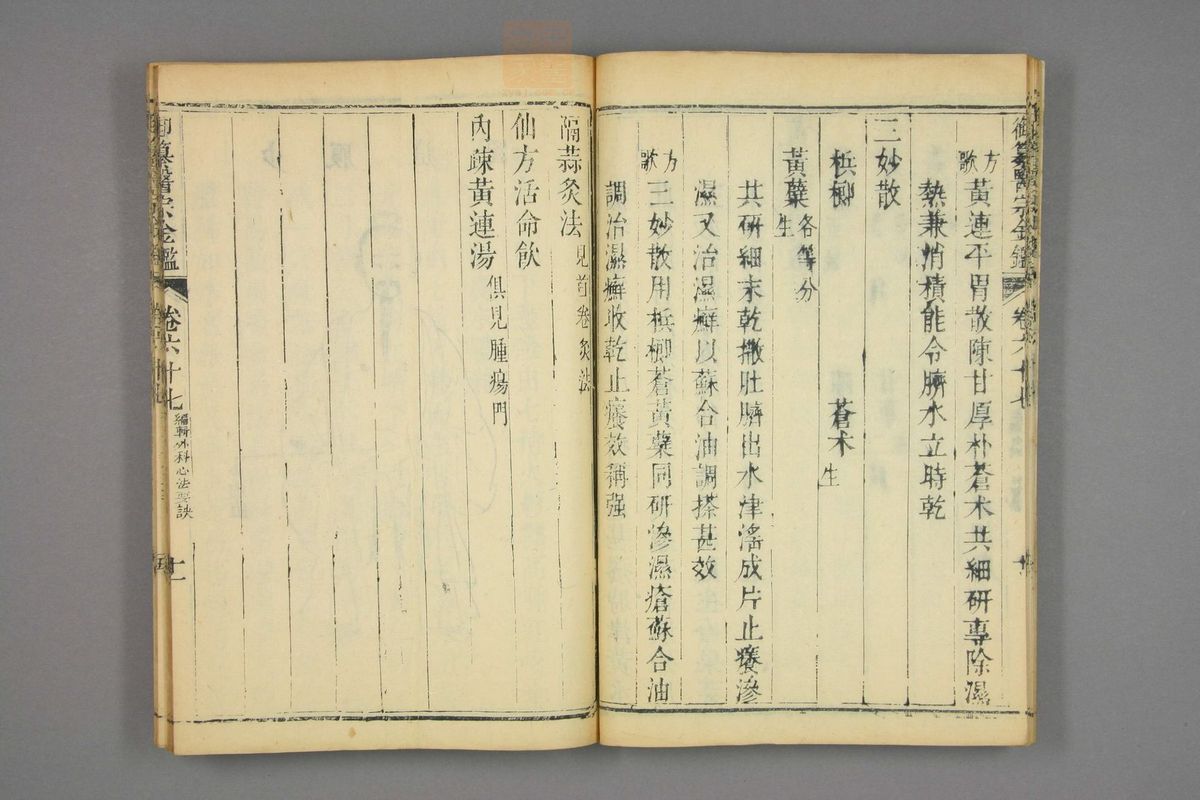 御纂醫宗金鑑 卷六十七 十
方歌 黃連平胃散陳甘厚朴蒼朮共細研專除濕
熱兼消積能令臍水立時乾
三妙散
梹榔 蒼朮生
黃蘗生各等分
共研細末乾撒肚臍出水津淫成片止癢滲
濕又治濕癬以蘇合油調搽甚效
方歌 三妙散用梹榔蒼黃蘗同研滲濕瘡蘇合油
調治濕癬收乾止癢效稱强
隔蒜灸法見首卷灸法
仙方活命飲
內疎黃連湯俱見腫瘍門
御纂醫宗金鑑 卷六十七 編輯外科心法要訣